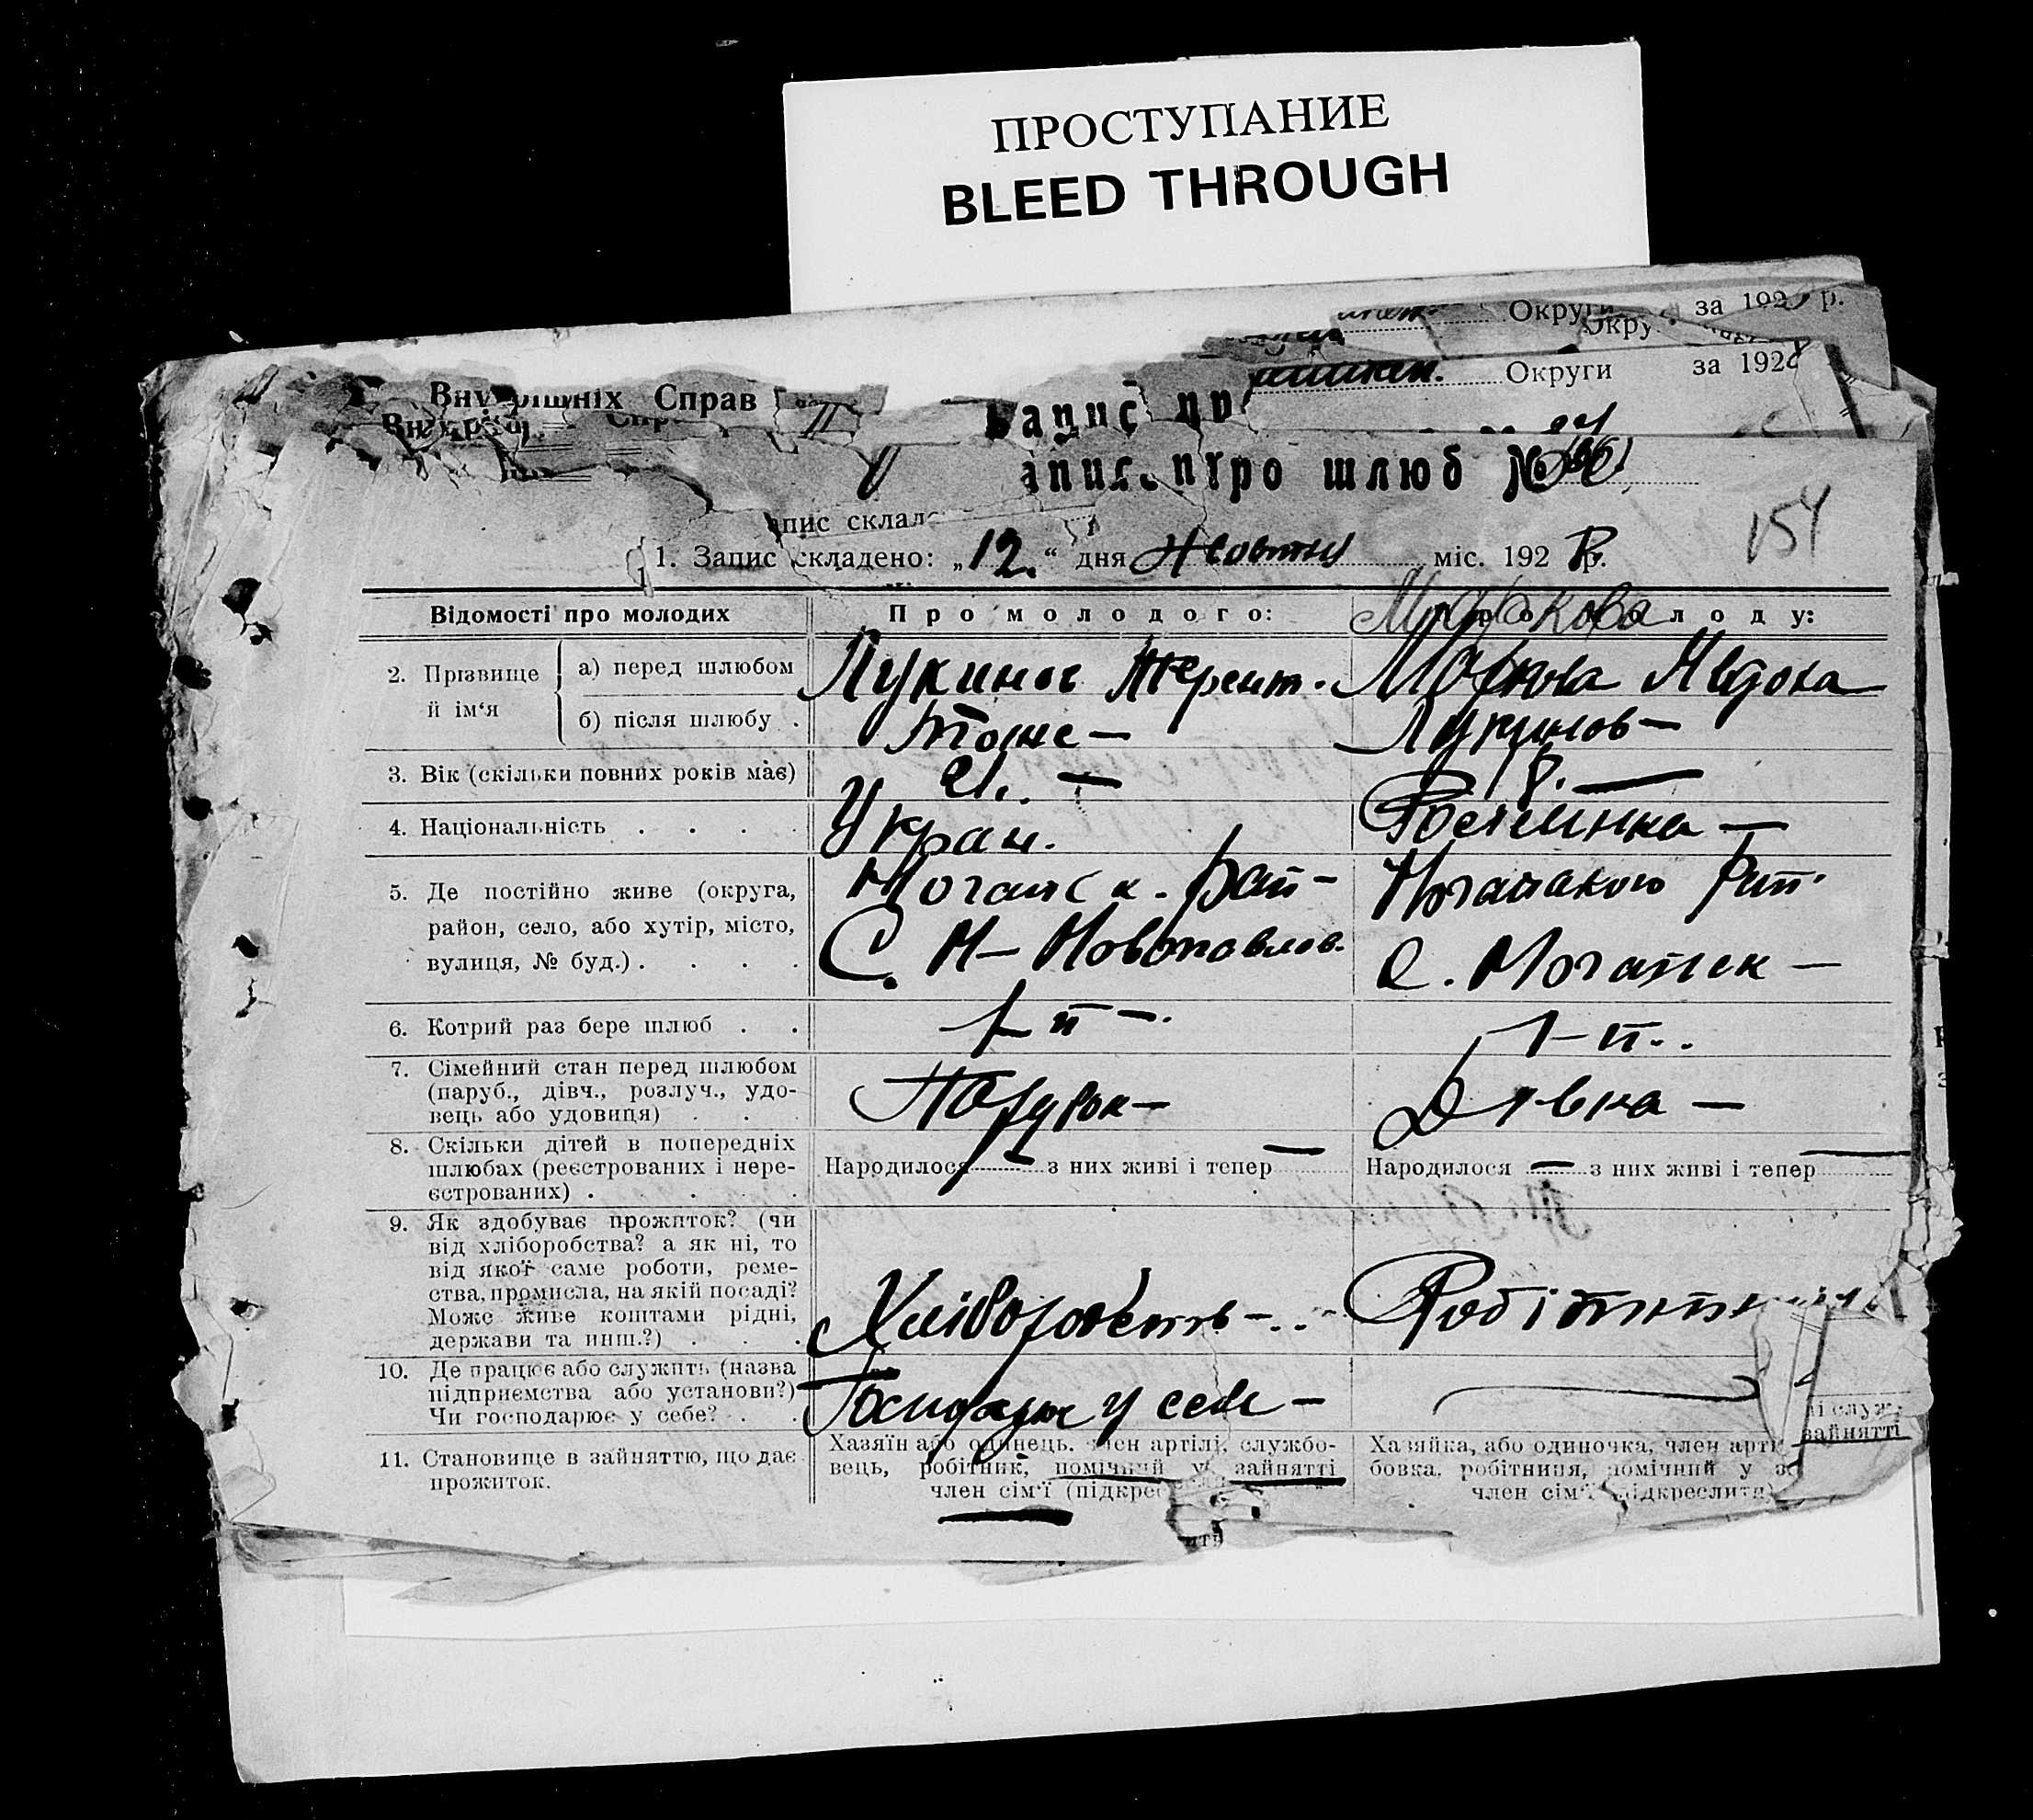 ПРОСТУПАНИЕ
BLEED THROUGH
Округи за 192 р.
Округи за 192
Внутрішніх Справ
апис про шлюб №
154
апис склад
1. Запис складено: „12.“ дня Жовтня міс. 192 р.
Відомості про молодих
Про молодого:
лоду:
2. Прізвище й ім‘я
а) перед шлюбом
Лукинов Терент.
Авдокя
б) після шлюбу .
Тоже —
Лукинов —
3. Вік (скільки повних років має)
21. —
18. —
4. Національність . . . .
Укран.
Росіянка —
5. Де постійно живе (округа,
район, село, або хутір, місто,
вулиця, № буд.) . . . .
Ногайск. Рай —
С. Н — Новопавлов.
Рай.
с. Ногайск —
6. Котрий раз бере шлюб . .
1 й —.
1 - й..
7. Сімейний стан перед шлюбом
(паруб., дівч., розлуч., удо-
вець або удовиця) . .
Парубок —
Дівка —
8. Скільки дітей в попередніх
шлюбах (реєстрованих і нере-
єстрованих) . . . .
Народилося — з них живі і тепер —
Народилося — з них живі і тепер —
9. Як здобуває прожиток? (чи
від хліборобства? а як ні, то
від якої саме роботи, реме-
ства, промисла, на якій посаді?
Може живе коштами рідні,
держави та инш.?) . . .
Хліборобств —..
10. Де працює або служить (назва
підприємства або установи?)
Чи господарює у себе? . .
Господарює у себе —
11. Становище в зайняттю, що дає
прожиток.
Хазяїн або одинець, член артілі, службо-
вець, робітник, помічний у зайнятті
член сім‘ї (підкре
Хазяйка, або одиночка, член арт
бовка, робітниця, помічний у з
член сім‘ї підкреслити)
і служ-
зайнятті